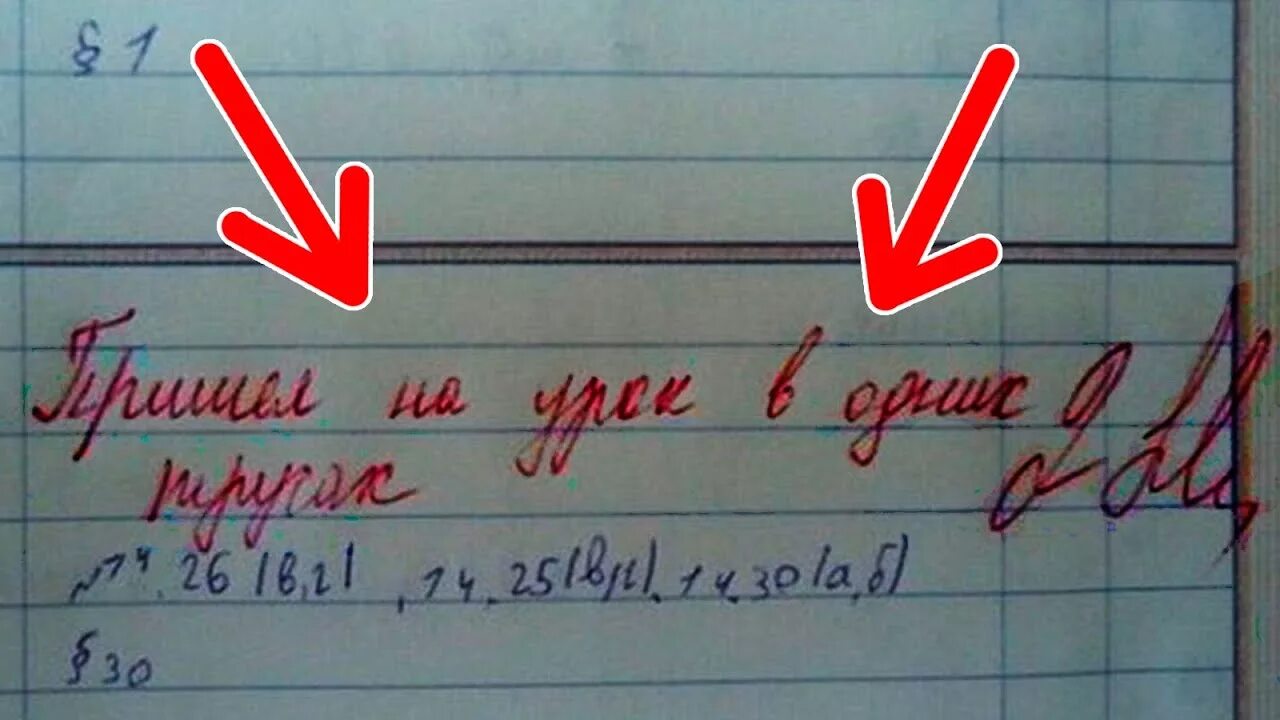 § 1
Пришел на урок в одних 2
трусах
№14.26(в,г), 14.25(в,г), 14.30(а,б)
§ 30